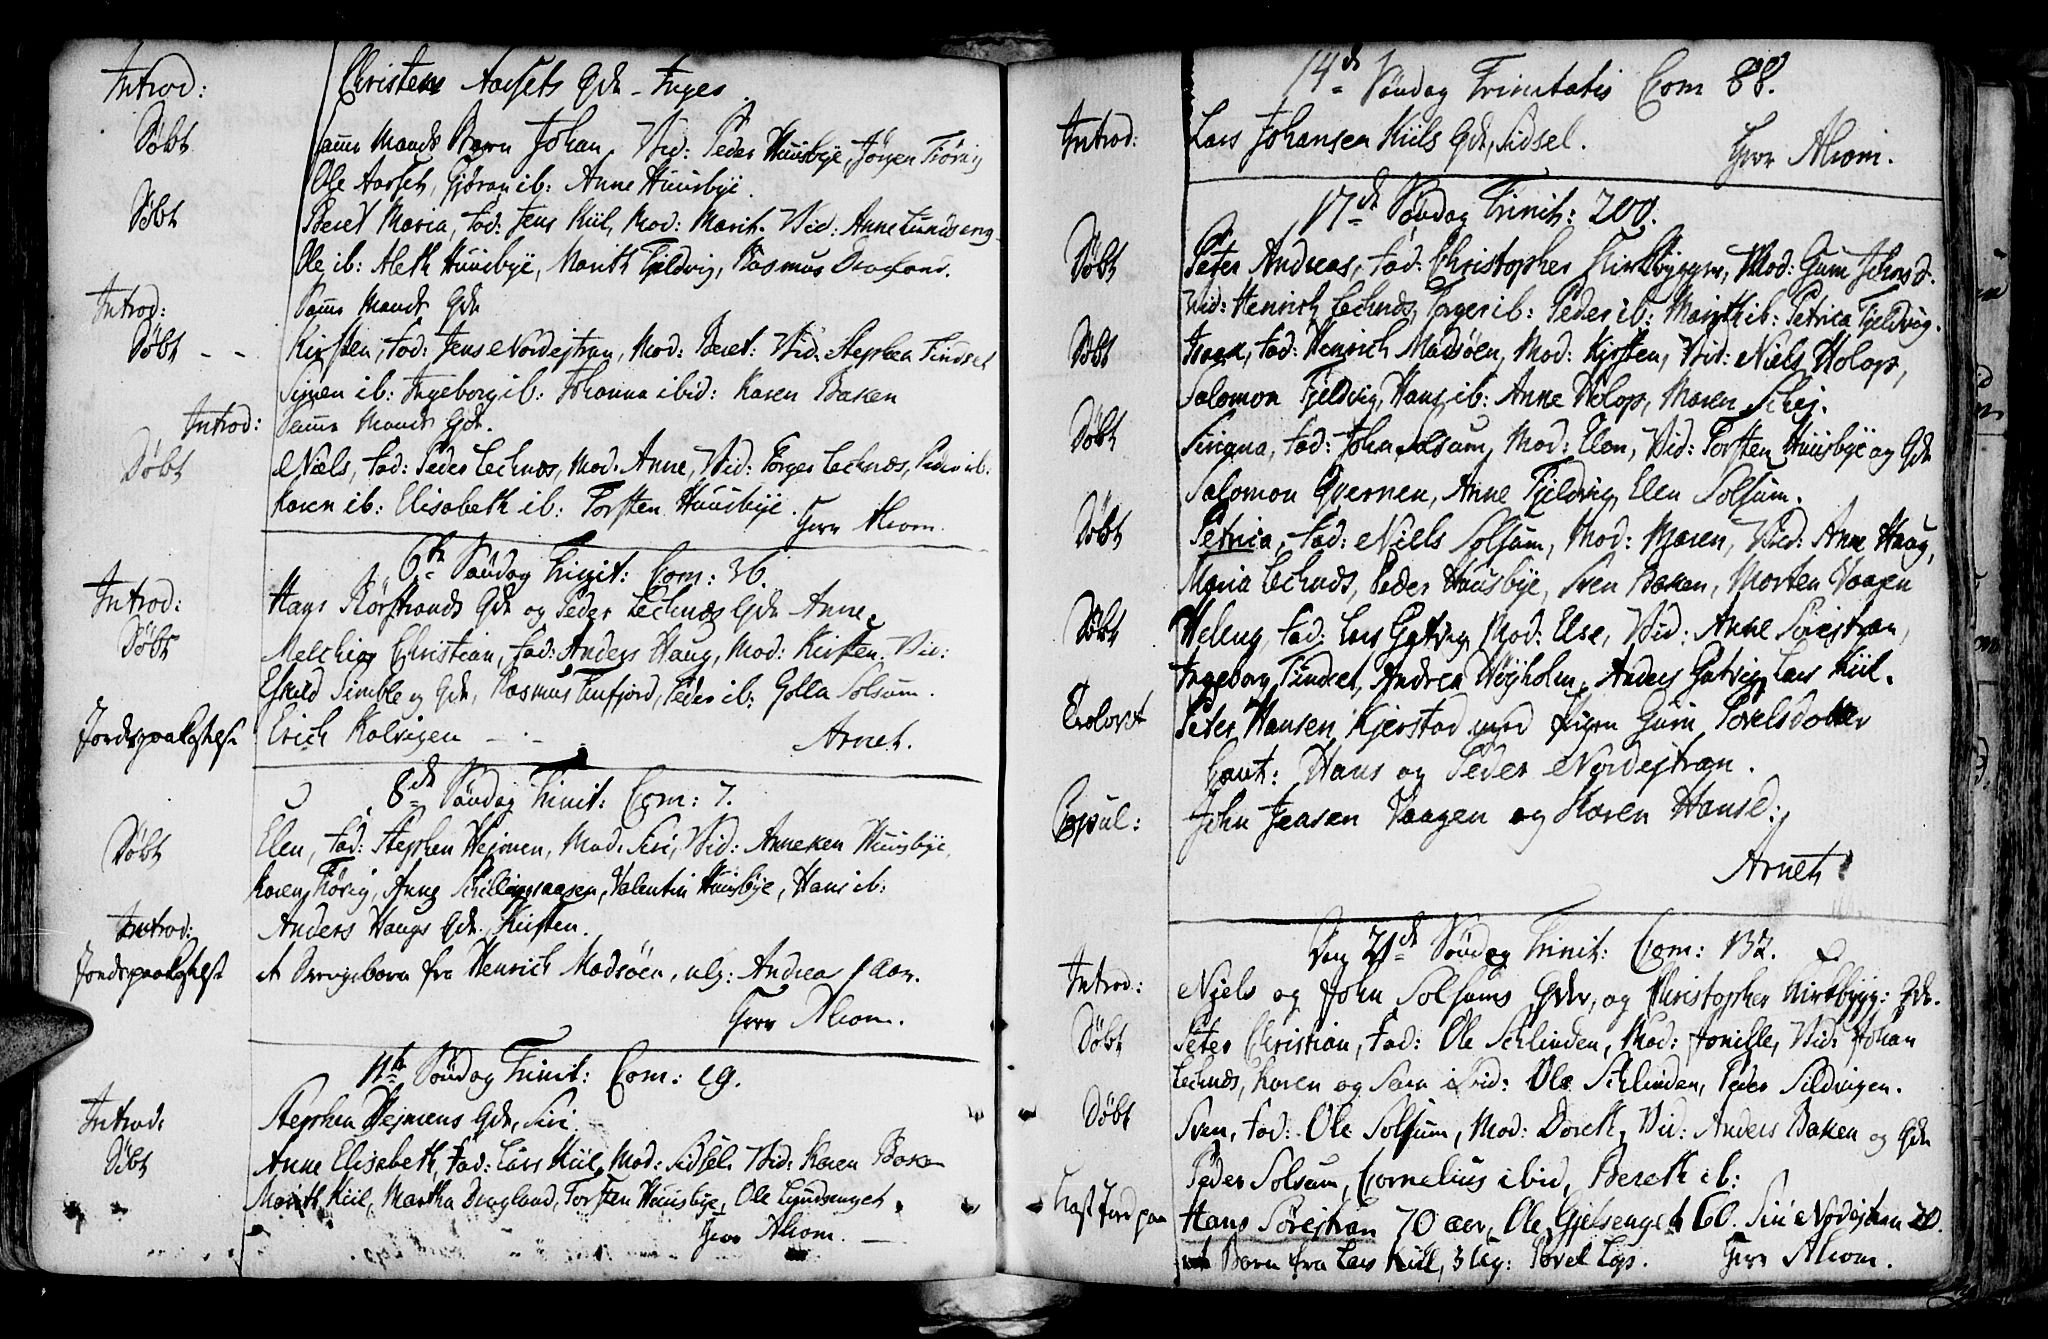 Introd: Christen Aarsets Qde - Inges
Døbt samme Mands Barn Johan. Vid: Peder Huusbye, Jørgen Tiørig
Ole Aarset, Gjøran ib: Anne Huusbye.
Døbt Beret Maria, Fad: Jens Kiil, Mod: Marit. Vid: Anne Lundseng
Ole ib: Aleth Huusbye, Marith Fjeldvig, Rasmus
Introd: Samme Mands Qde
Døbt - - Kirsten, Fad: Jens Nordejtran, Mod: Beret: Vid: Stephen Tindset
Simen ib: Ingeborg ib: Johanna ibid: Karen Baken
Introd: Samme Mands Qde.
Døbt Niels, Fad: Peder Lecknæs, Mod: Anne, Vid: Torger Lecknæs, Peder ib.
Karen ib: Elisabeth ib: Torsten Huusbye.
Herr Ahrom.
6te Søndag Trinit: Com: 36.
Introd: Hans Rørstrands Qde og Peder Lecknæs Qde Anne.
Døbt Melchior Christian, Fad: Anders Haug, Mod: Kirsten. Vid:
Eskild Simble og Qde, Rasmus Tufjord, Peder ib: Golla Solsum.
Jordspaakastelse Erich Kalvigen - . -
Arnet.
8de Søndag Trinit: Com: 7.
Døbt Elen, Fad: Stephen Hejmen, Mod: Siri, Vid: Anneken Huusbye,
Karen Tiørig, Anne Schillingsaasen, Valentin Huusbye, Hans ib:
Introd: Anders Haugs Qde. Kirsten.
Jordspaakastelse et Drengebarn fra Henrich Madsøen, nlg: Andreas 1 Aar.
Herr Ahrom.
11te Søndag Trinit: Com: 29.
Introd: Stephen Hejmens Qde, Siri
Døbt Anne Elisabeth, Fad: Lars Kiil, Mod: Sidsel. Vid: Karen Baken
Marith Kiil, Martha Dragland, Torsten Huusbye, Ole Lundsenget.
Herr Ahrom. -
14de Søndag Trinitatis Com 88.
Introd: Lars Johansen Kiils Qde, Sidsel.
Herr Ahrom.
17de Søndag Trinit: 200.
Døbt Peter Andreas, Fad: Christopher Kirkbygger, Mod: Guru Johnsd.
Vid: Henrich Lecknæs, Torger ib: Peder ib: Marith ib: Petrica Fjeldvig.
Døbt Fad: Henrich Madsøen, Mod: Kirsten, Vid: Niels Holop,
Salomon Fjeldvig, Hans ib: Anne Holop, Maren Schej.
Døbt Siriana, Fad: John Solsum, Mod: Elen, Vid: Torsten Huusbye og Qde
Salomon Qvernen, Anne Fjeldvig, Elen Solsum.
Døbt Petrica, Fad: Niels Solsum, Mod: Maren, Vid: Anne Haug,
Maria Lecknæs, Peder Huusbye, Sven Baken, Morten Vaagen
Døbt Helena, Fad: Lars Gutvig, Mod: Else, Vid: Anne Sørejtran,
Ingeborg Tindset, Andrea Højholm, Anders Gutvig, Lars Kiil.
Trolovet Peter Hansen Kjerstad med Pigen Guru Povelsdotter
Caut: Hans og Peder Nordejtran.
Copul: John Jensen Vaagen og Karen Hansd:
Arnet.
Dom: 21de Søndag Trinit: Com: 132.
Introd: Niels og John Solsums Qder, og Christopher Kirkbygg: Qde.
Døbt Peter Christian, Fad: Ole Schlinden, Mod: Jonille, Vid: Johan
Lecknæs, Karen og Sara ibid: Ole Schlinden, Peder Sildvigen.
Døbt Sven, Fad: Ole Solsum, Mod: Doreth, Vid: Anders Baken og Qde
Peder Solsum, Cornelius ibid, Bereth ib:
Kast Jord paa Hans Sørejtran 70 aar, Ole Gjelsenget 60. Siri Nordejtran 20.
et Barn fra Lars Kiil, 3 Ug: Povel Lop. Herr Ahrom.